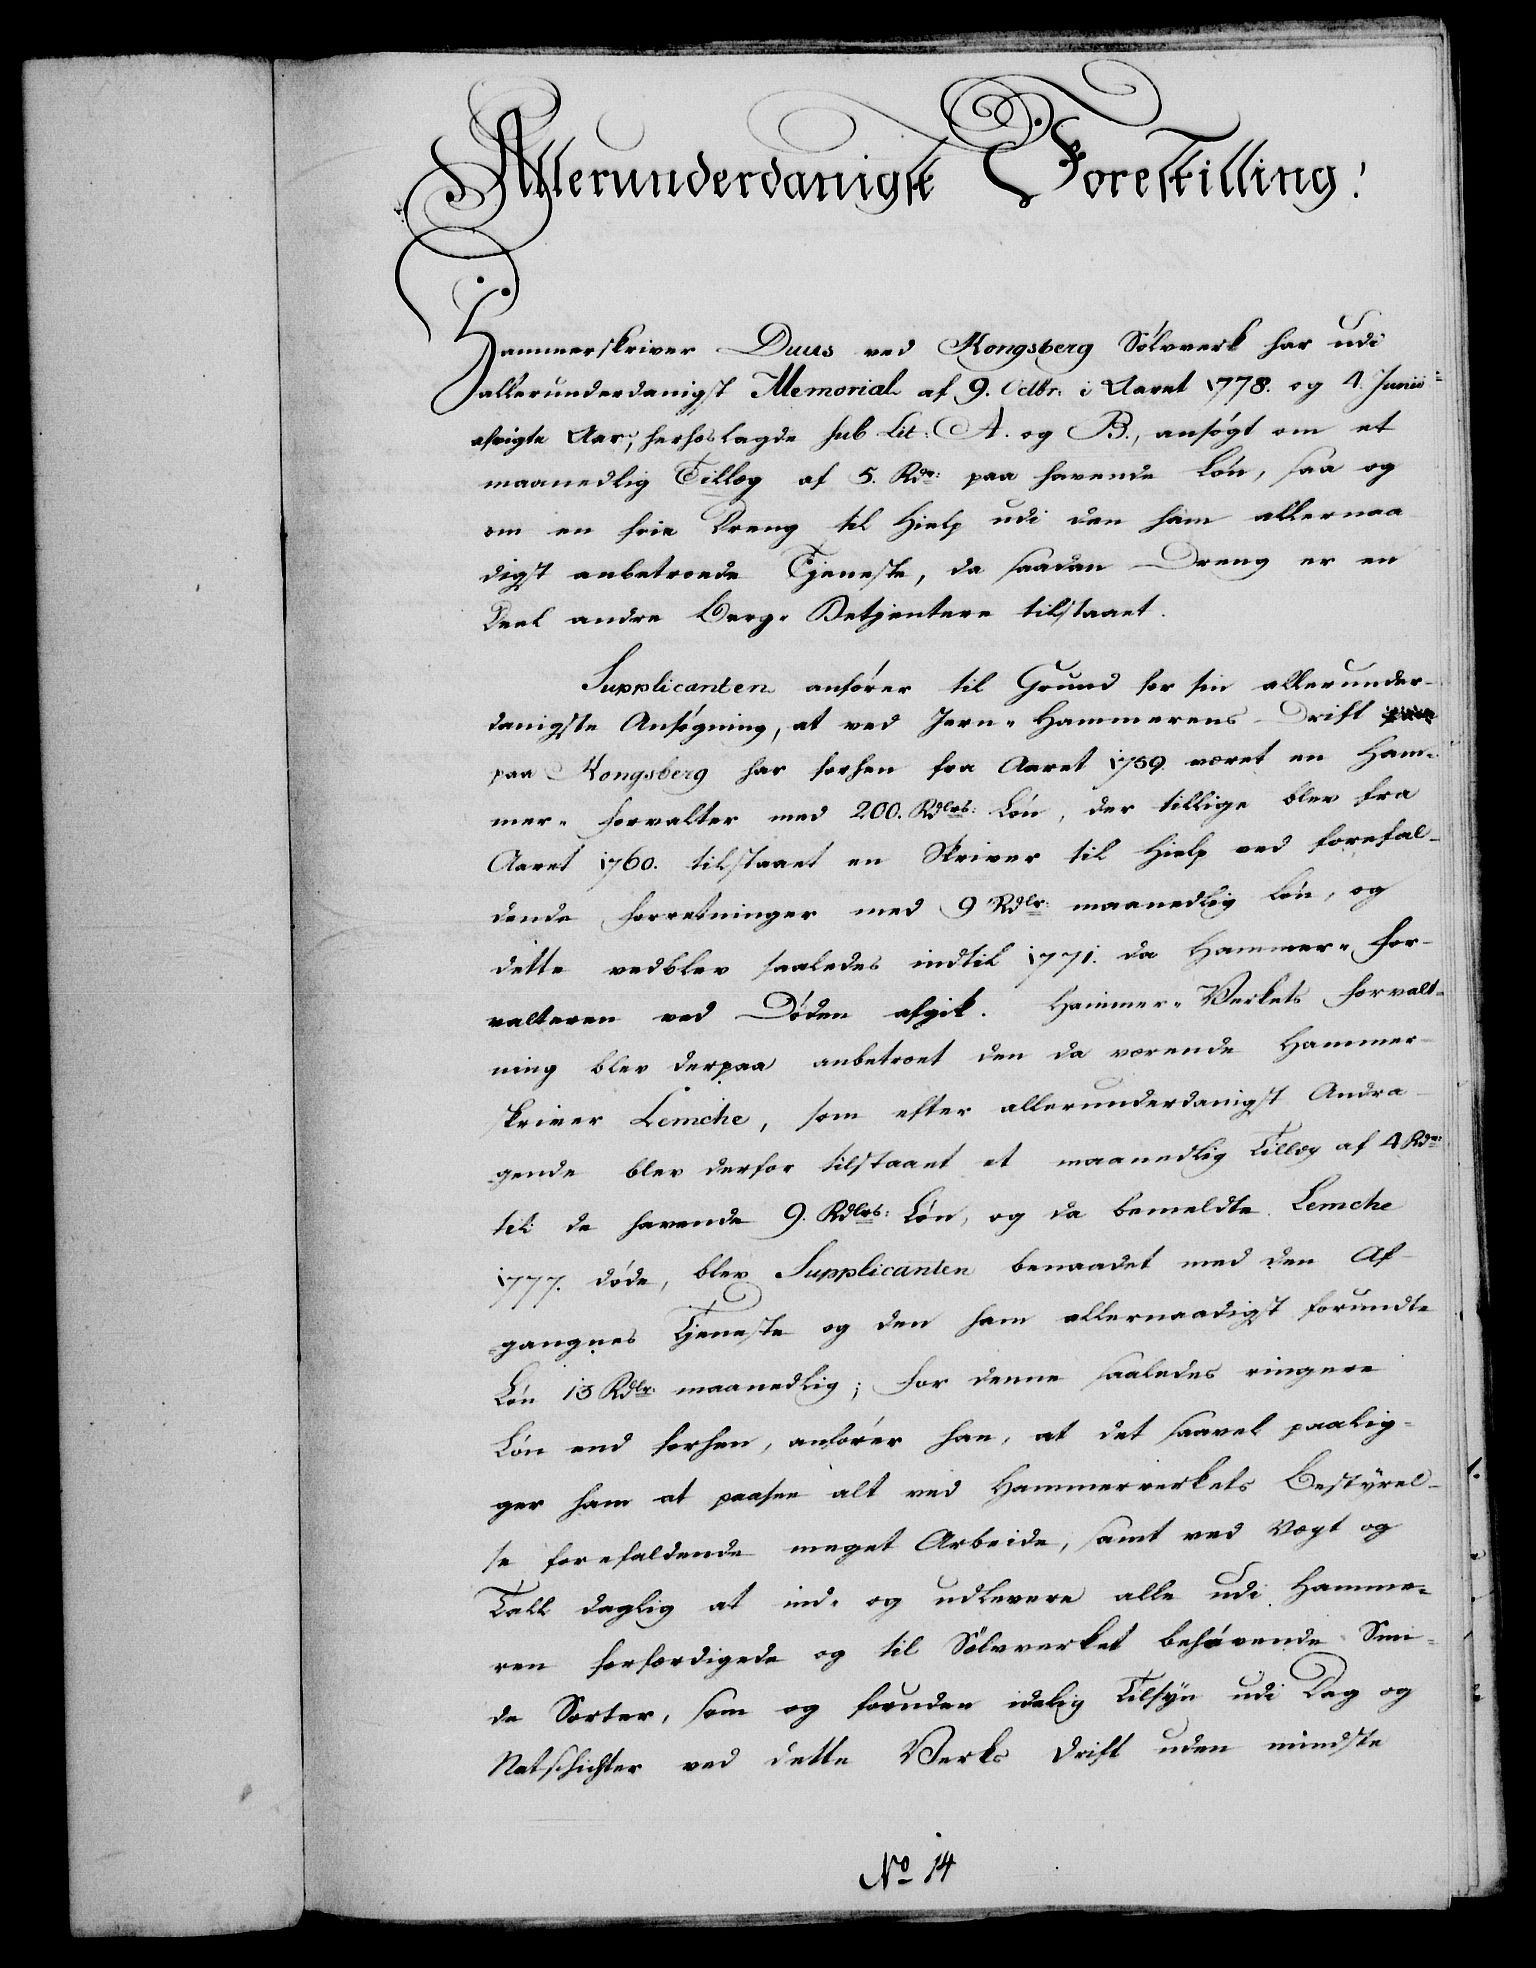 Allerunderdanigst Forestilling!
Hammerskriver Duus ved Kongsberg Sölvverk har udi
allerunderdanigst Memorial af 9. Octbr: i Aaret 1778. og 4. Junii
afvigte Aar, herhoslagde sub Lit: A. og B., ansögt om et
maanedlig Tillæg af 5. Rdr: paa havende Lön, saa og
om en frie Dreng til Hielp udi den ham allernaa
digst anbetroede Tjeneste, da saadan Dreng er en
Deel andre Berg-Betjentere tilstaaet.
Supplicanten anförer til Grund for sin allerunder-
danigste Ansögning, at ved Jern-Hammerens Drift
paa Kongsberg har forhen fra Aaret 1759. været en Ham-
mer-Forvalter med 200. Rdlrs: Lön, der tillige blev fra
Aaret 1760. tilstaaet en Skriver til Hielp ved forefal-
dende Forretninger med 9 Rdlr: maanedlig Lön, og
dette vedblev saaledes indtil 1771. da Hammer-For-
valteren ved Döden afgik. Hammer-Verkets Forvalt-
ning blev derpaa anbetroet den da værende Hammer-
skriver Lemche, som efter allerunderdanigst Andra-
gende blev derfor tilstaaet et maanedlig Tillæg af 4 Rdr:
til de havende 9. Rdlrs: Lön, og da bemeldte Lemche
1777. döde, blev Supplicanten benaadet med den Af-
gangnes Tjeneste og den ham allernaadigst forundte
Lön 13 Rdlr: maanedlig; for denne saaledes ringere
Lön end forhen, anförer han, at det saavel paalig-
ger ham at paasee alt ved Hammerverkets Bestÿrel-
se forefaldende meget Arbeide, samt ved Vægt og
Tall daglig at ind- og udlevere alle udi Hamme-
ren forfærdigede og til Sölvverket behövende Smi-
de Sorter, som og foruden idelig Tilsÿn udi Dag og
Natschichter ved dette Verks Drift uden mindste
No 14